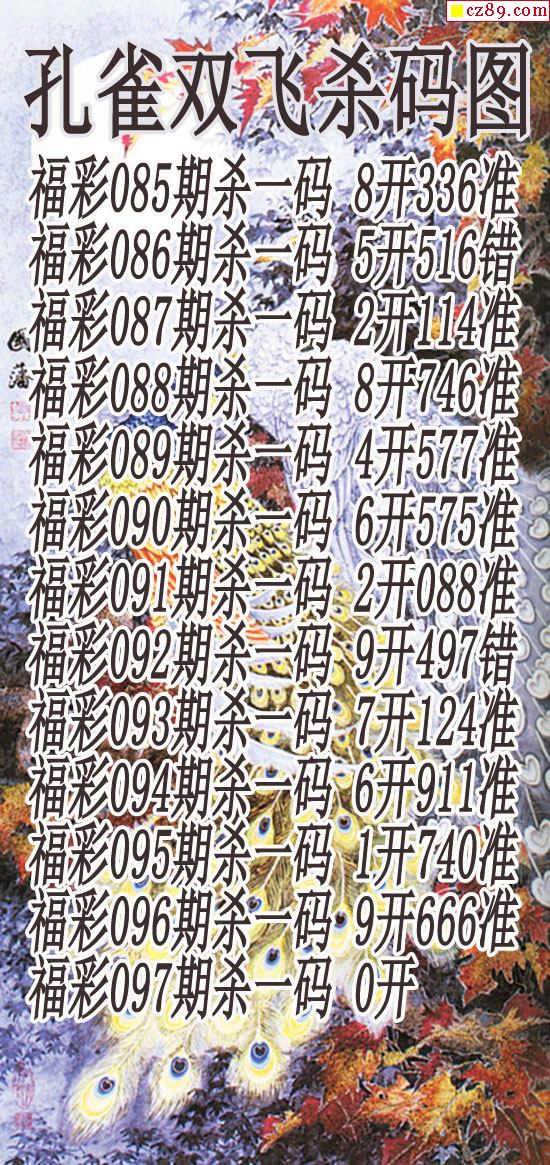 cz89.com
孔雀双飞杀码图
福彩085期杀一码 8开336准
福彩086期杀一码 5开516错
福彩087期杀一码 2开114准
福彩088期杀一码 8开746准
福彩089期杀一码 4开577准
福彩090期杀一码 6开575准
福彩091期杀一码 2开088准
福彩092期杀一码 9开497错
福彩093期杀一码 7开124准
福彩094期杀一码 6开911准
福彩095期杀一码 1开740准
福彩096期杀一码 9开666准
福彩097期杀一码 0开